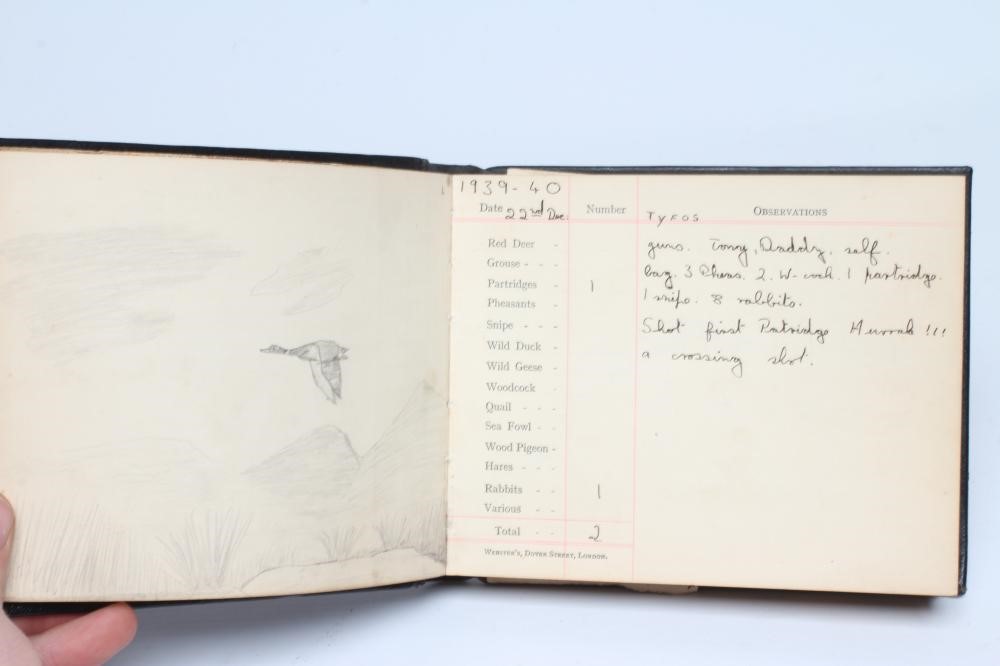 1939-40
Date 22nd Dec. Number TYFOS OBSERVATIONS
Red Deer -
Grouse - - -
Partridges - 1
Pheasants -
Snipe - - -
Wild Duck -
Wild Geese -
Woodcock -
Quail - - -
Sea Fowl - -
Wood Pigeon -
Hares - - -
Rabbits - - 1
Various - -
Total - - 2
WEBSTER'S, DOVER STREET, LONDON.
guns. Tony, Daddy, self.
bag. 3 Pheas. 2. W-cock. 1 partridge.
1 snipe. 8 rabbits.
Shot first Patridge Hurrah !!!
a crossing shot.